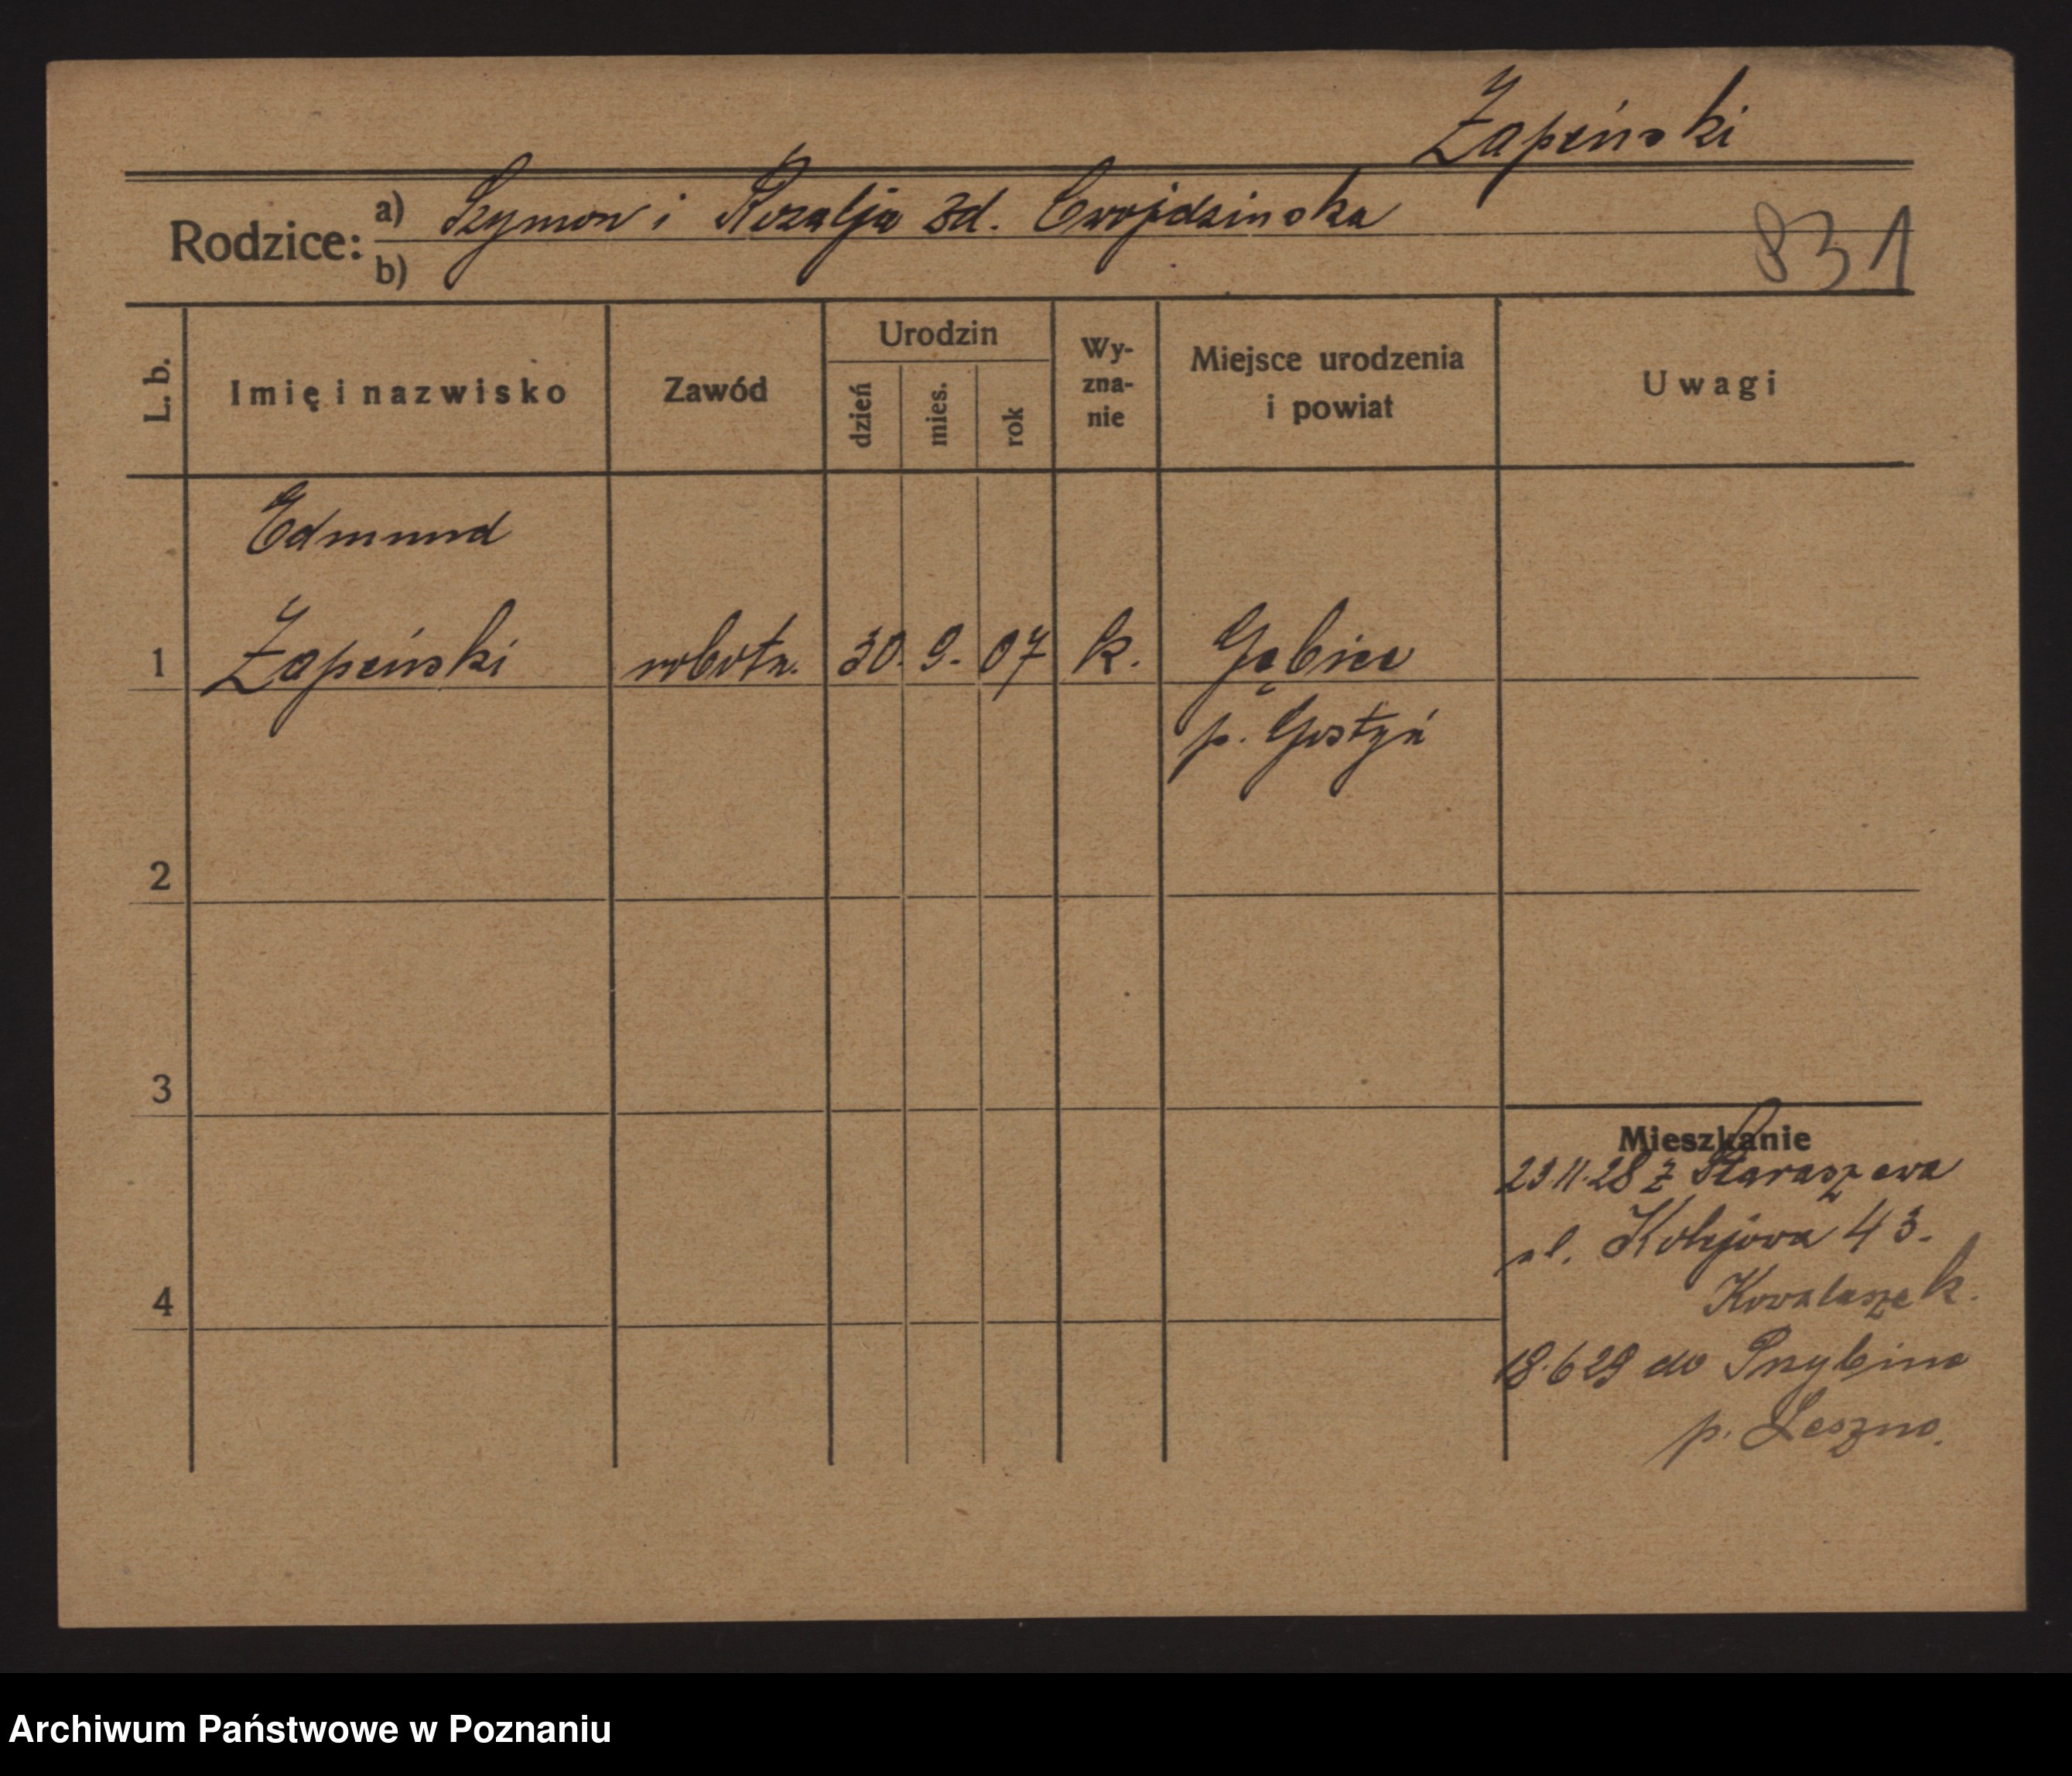 Żapiński
Rodzice: a) Szymon i Rozalja zd. Cwojdzinska
b)
831
L. b.
Imię i nazwisko
Zawód
Urodzin
dzień
mies.
rok
Wy-
zna-
nie
Miejsce urodzenia
i powiat
Uwagi
Edmund
1 Żapiński robotn. 30. 9. 07 k. Gębice
p. Gostyń
2
3
4
Mieszkanie
23.11.28 z
ul. Kolejowa 43.
18.6 29 do Przybina
p. Leszno.
Archiwum Państwowe w Poznaniu